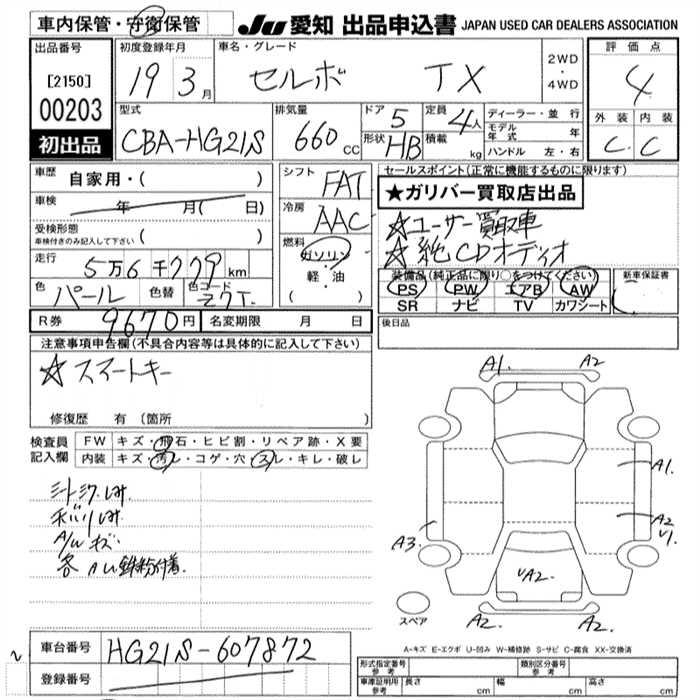 車内保管・守衛保管
JU 愛知 出品申込書 JAPAN USED CAR DEALERS ASSOCIATION
出品番号 初度登録年月 車名・グレード 評価点
[2150] 19 3月 セルボ TX 2WD・4WD 4
00203 型式 排気量 ドア 5 定員 4人 ディーラー・並行 外装 内装
初出品 CBA-HG21S 660cc 形状 HB 積載 kg モデル年式 年 C C
ハンドル 左・右
車歴 自家用・( ) シフト FAT セールスポイント(正常に機能するものに限ります)
車検 年 月( 日) 冷房 AAC ★ガリバー買取店出品
受検形態 車検付きのみ記入して下さい ( ) ☆ユーザー買取車
走行 5万6千779km 燃料 ガソリン・軽・油 ( ) ☆純CDオーディオ
色 パール 色替 色コード Z7T 装備品(純正品に限り○をつけてください) 新車保証書
PS PW エアB AW
SR ナビ TV カワシート
R券 9670円 名変期限 月 日 後日品
注意事項申告欄(不具合内容等は具体的に記入して下さい)
☆スマートキー
修復歴 有(箇所
検査員記入欄 FW キズ・飛石・ヒビ割・リペア跡・X要
内装 キズ・汚レ・コゲ・穴・スレ・キレ・破レ
A1. A2
A1.
A2
A3.
A2.
A2. A2.
A/W キズ.
スペア
A-キズ E-エクボ U-凹み W-補修跡 S-サビ C-腐食 XX-交換済
車台番号 HG21S-607872
登録番号
形式指定番号 参考 類別区分番号 参考
車庫証明用 参考 長さ cm 幅 cm 高さ cm